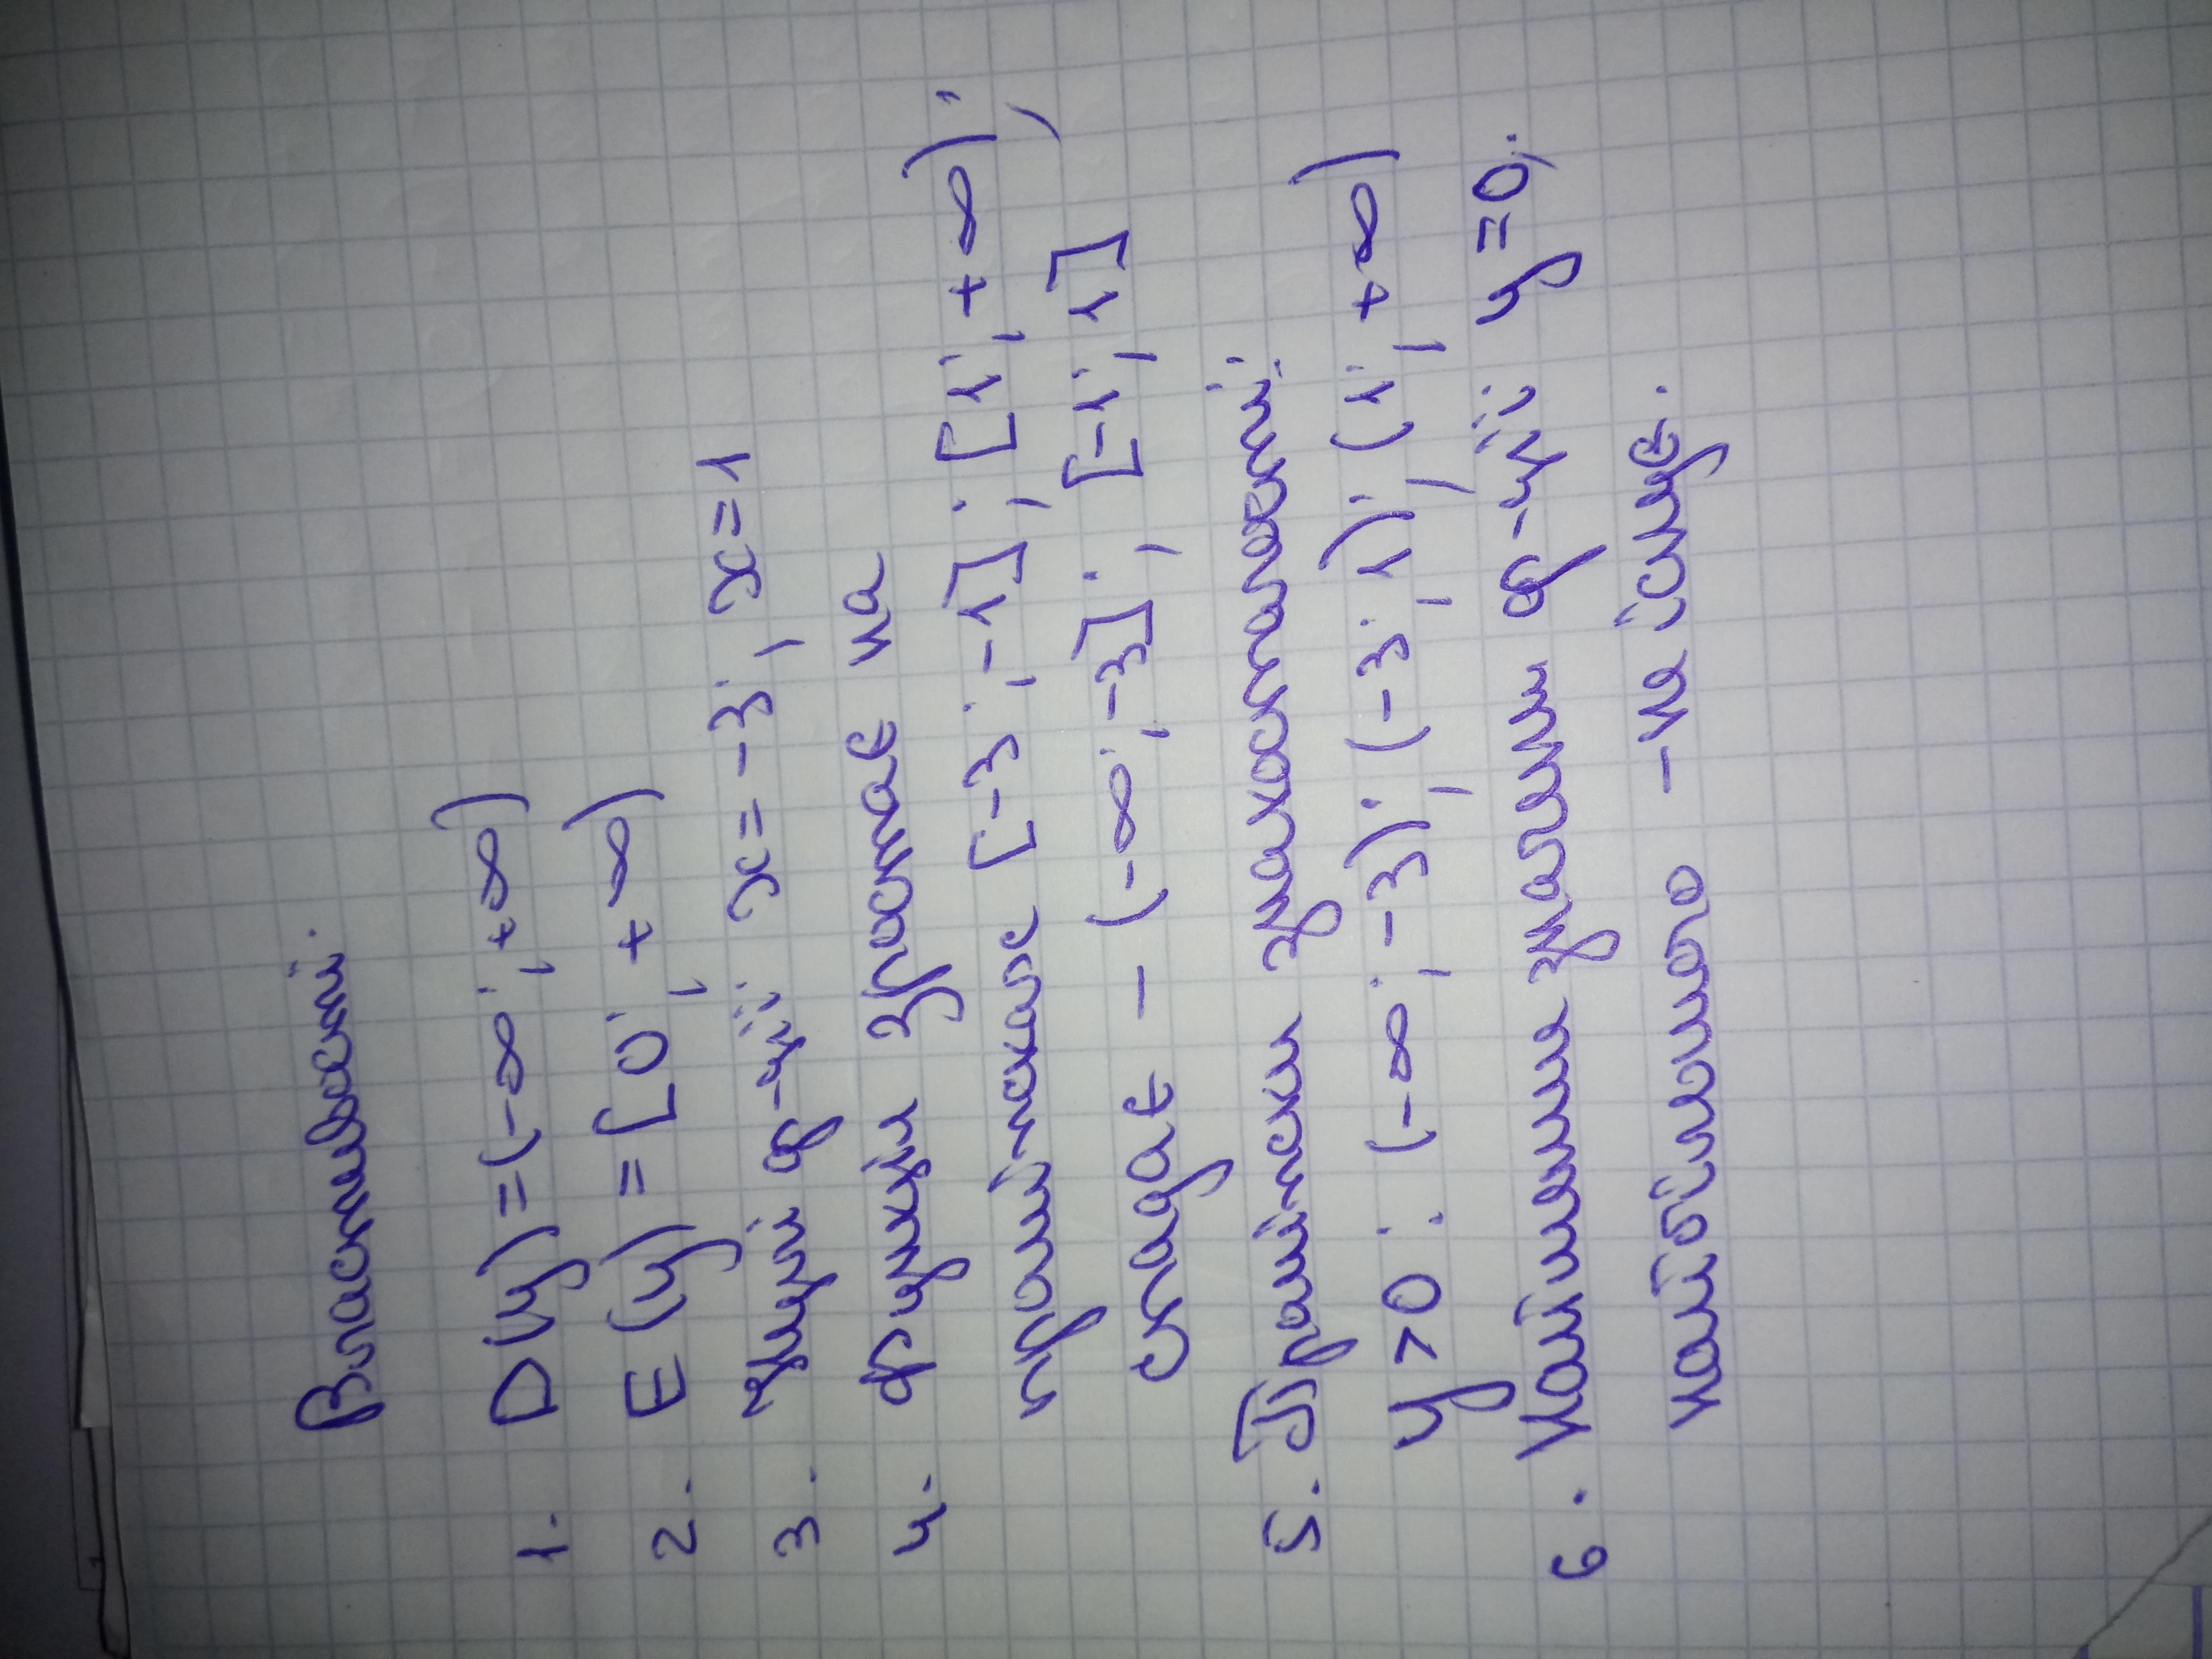 Властивості.
1. D(y)=(-∞; +∞)
2. E(y) = [0; + ∞)
3. нулі ф-ції: x= -3; x=1
4. функція зростає на
проміжках [-3; -1]; [1; +∞);
спадає - (-∞; -3]; [-1; 1]
5. Проміжки знакосталості:
y>0: (-∞; -3); (-3; 1); (1; +∞)
6. Найменше значення ф-ції: y=0;
найбільшого -не існує.